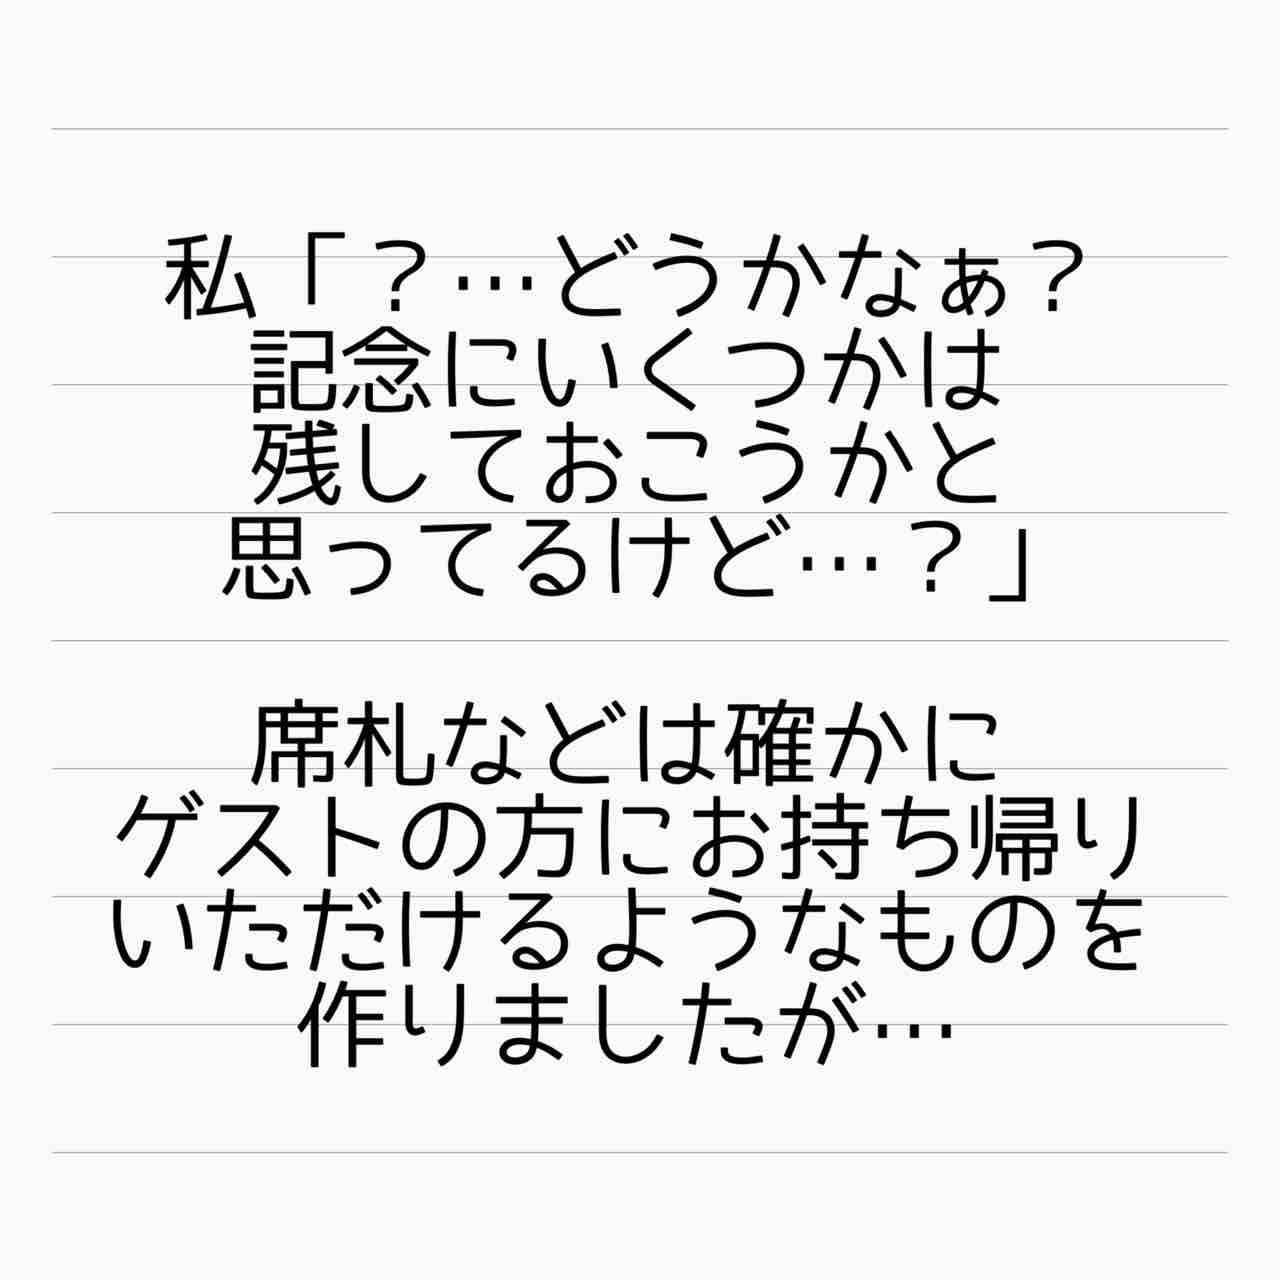 私「？…どうかなぁ？
記念にいくつかは
残しておこうかと
思ってるけど…？」
席札などは確かに
ゲストの方にお持ち帰り
いただけるようなものを
作りましたが…